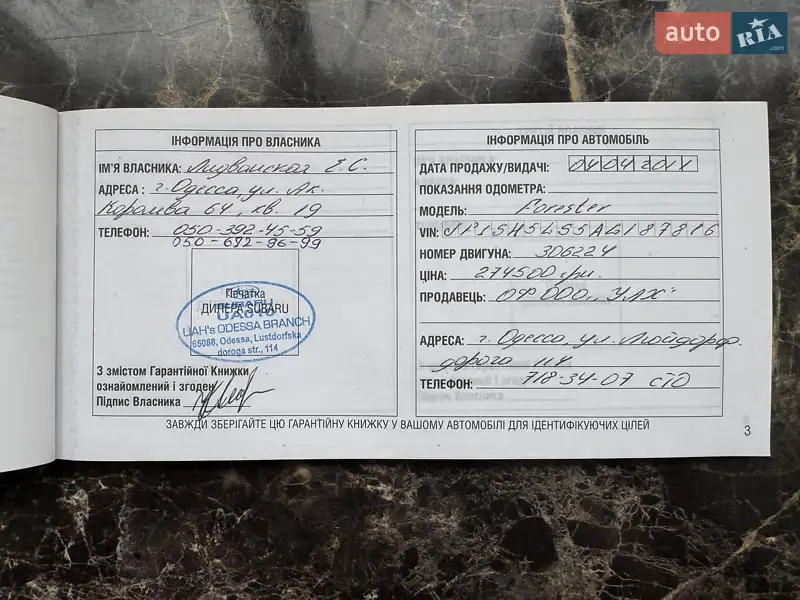 auto RIA.com
ІНФОРМАЦІЯ ПРО ВЛАСНИКА
ІМ'Я ВЛАСНИКА: Е.С.
АДРЕСА : г. Одесса, ул. Ак.
Королева 64, кв. 19
ТЕЛЕФОН: 050-392-45-59
050-672-96-99
Печатка
ДИЛЕРА SUBARU
SUBARU
UAH's ODESSA BRANCH
65088, Odessa, Lustdorfska
doroga str., 114
З змістом Гарантійної Книжки
ознайомлений і згоден
Підпис Власника
ІНФОРМАЦІЯ ПРО АВТОМОБІЛЬ
ДАТА ПРОДАЖУ/ВИДАЧІ: 04042011
ПОКАЗАННЯ ОДОМЕТРА:
МОДЕЛЬ: Forester
VIN: JF1SH5LS5AG187816
НОМЕР ДВИГУНА: 306224
ЦІНА: 274500 грн.
ПРОДАВЕЦЬ: ОФ ООО „УАХ"
АДРЕСА: г. Одесса, ул.
дорога 114
ТЕЛЕФОН: 718-34-07 СТО
ЗАВЖДИ ЗБЕРІГАЙТЕ ЦЮ ГАРАНТІЙНУ КНИЖКУ У ВАШОМУ АВТОМОБІЛІ ДЛЯ ІДЕНТИФІКУЮЧИХ ЦІЛЕЙ
3